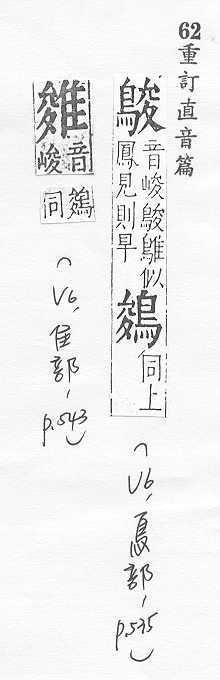 62 重訂直音篇
鵕 音峻鵕似
鳳見則旱
鵔 同上
(V6, 鳥部, p.535)
音峻
鵔同
(V6, 隹部, p.543)